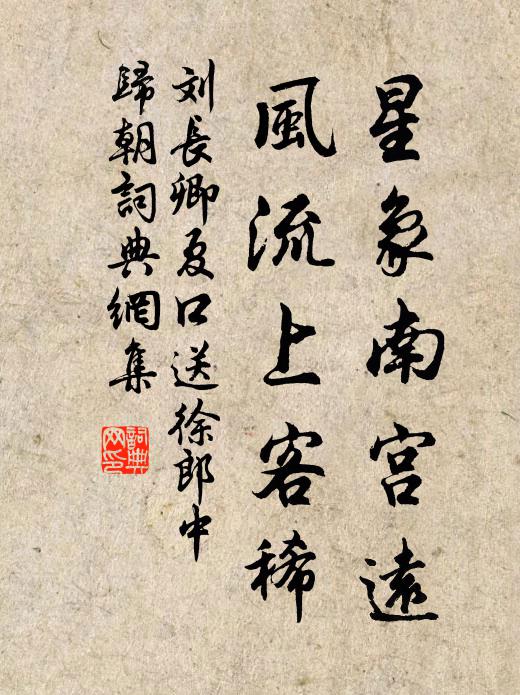 星象南宫遠
風流上客稀
刘長卿夏口送徐郎中
歸朝詞典網集
詞典网印